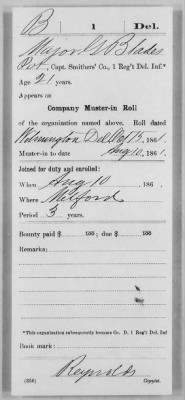 B | 1 | Del.
Major G Blades
Pvt, Capt. Smithers' Co., 1 Reg't Del. Inf.*
Age 21 years.
Appears on
Company Muster-in Roll
of the organization named above. Roll dated
Wilmington Del Oct 15, 1861.
Muster-in to date Aug 10, 1861.
Joined for duty and enrolled:
When Aug 10, 186 .
Where Milford
Period 3 years.
Bounty paid $ 100; due $ 100
Remarks:
*This organization subsequently became Co. D, 1 Reg't Del. Inf
Book mark:
Reynolds
(356) Copyist.